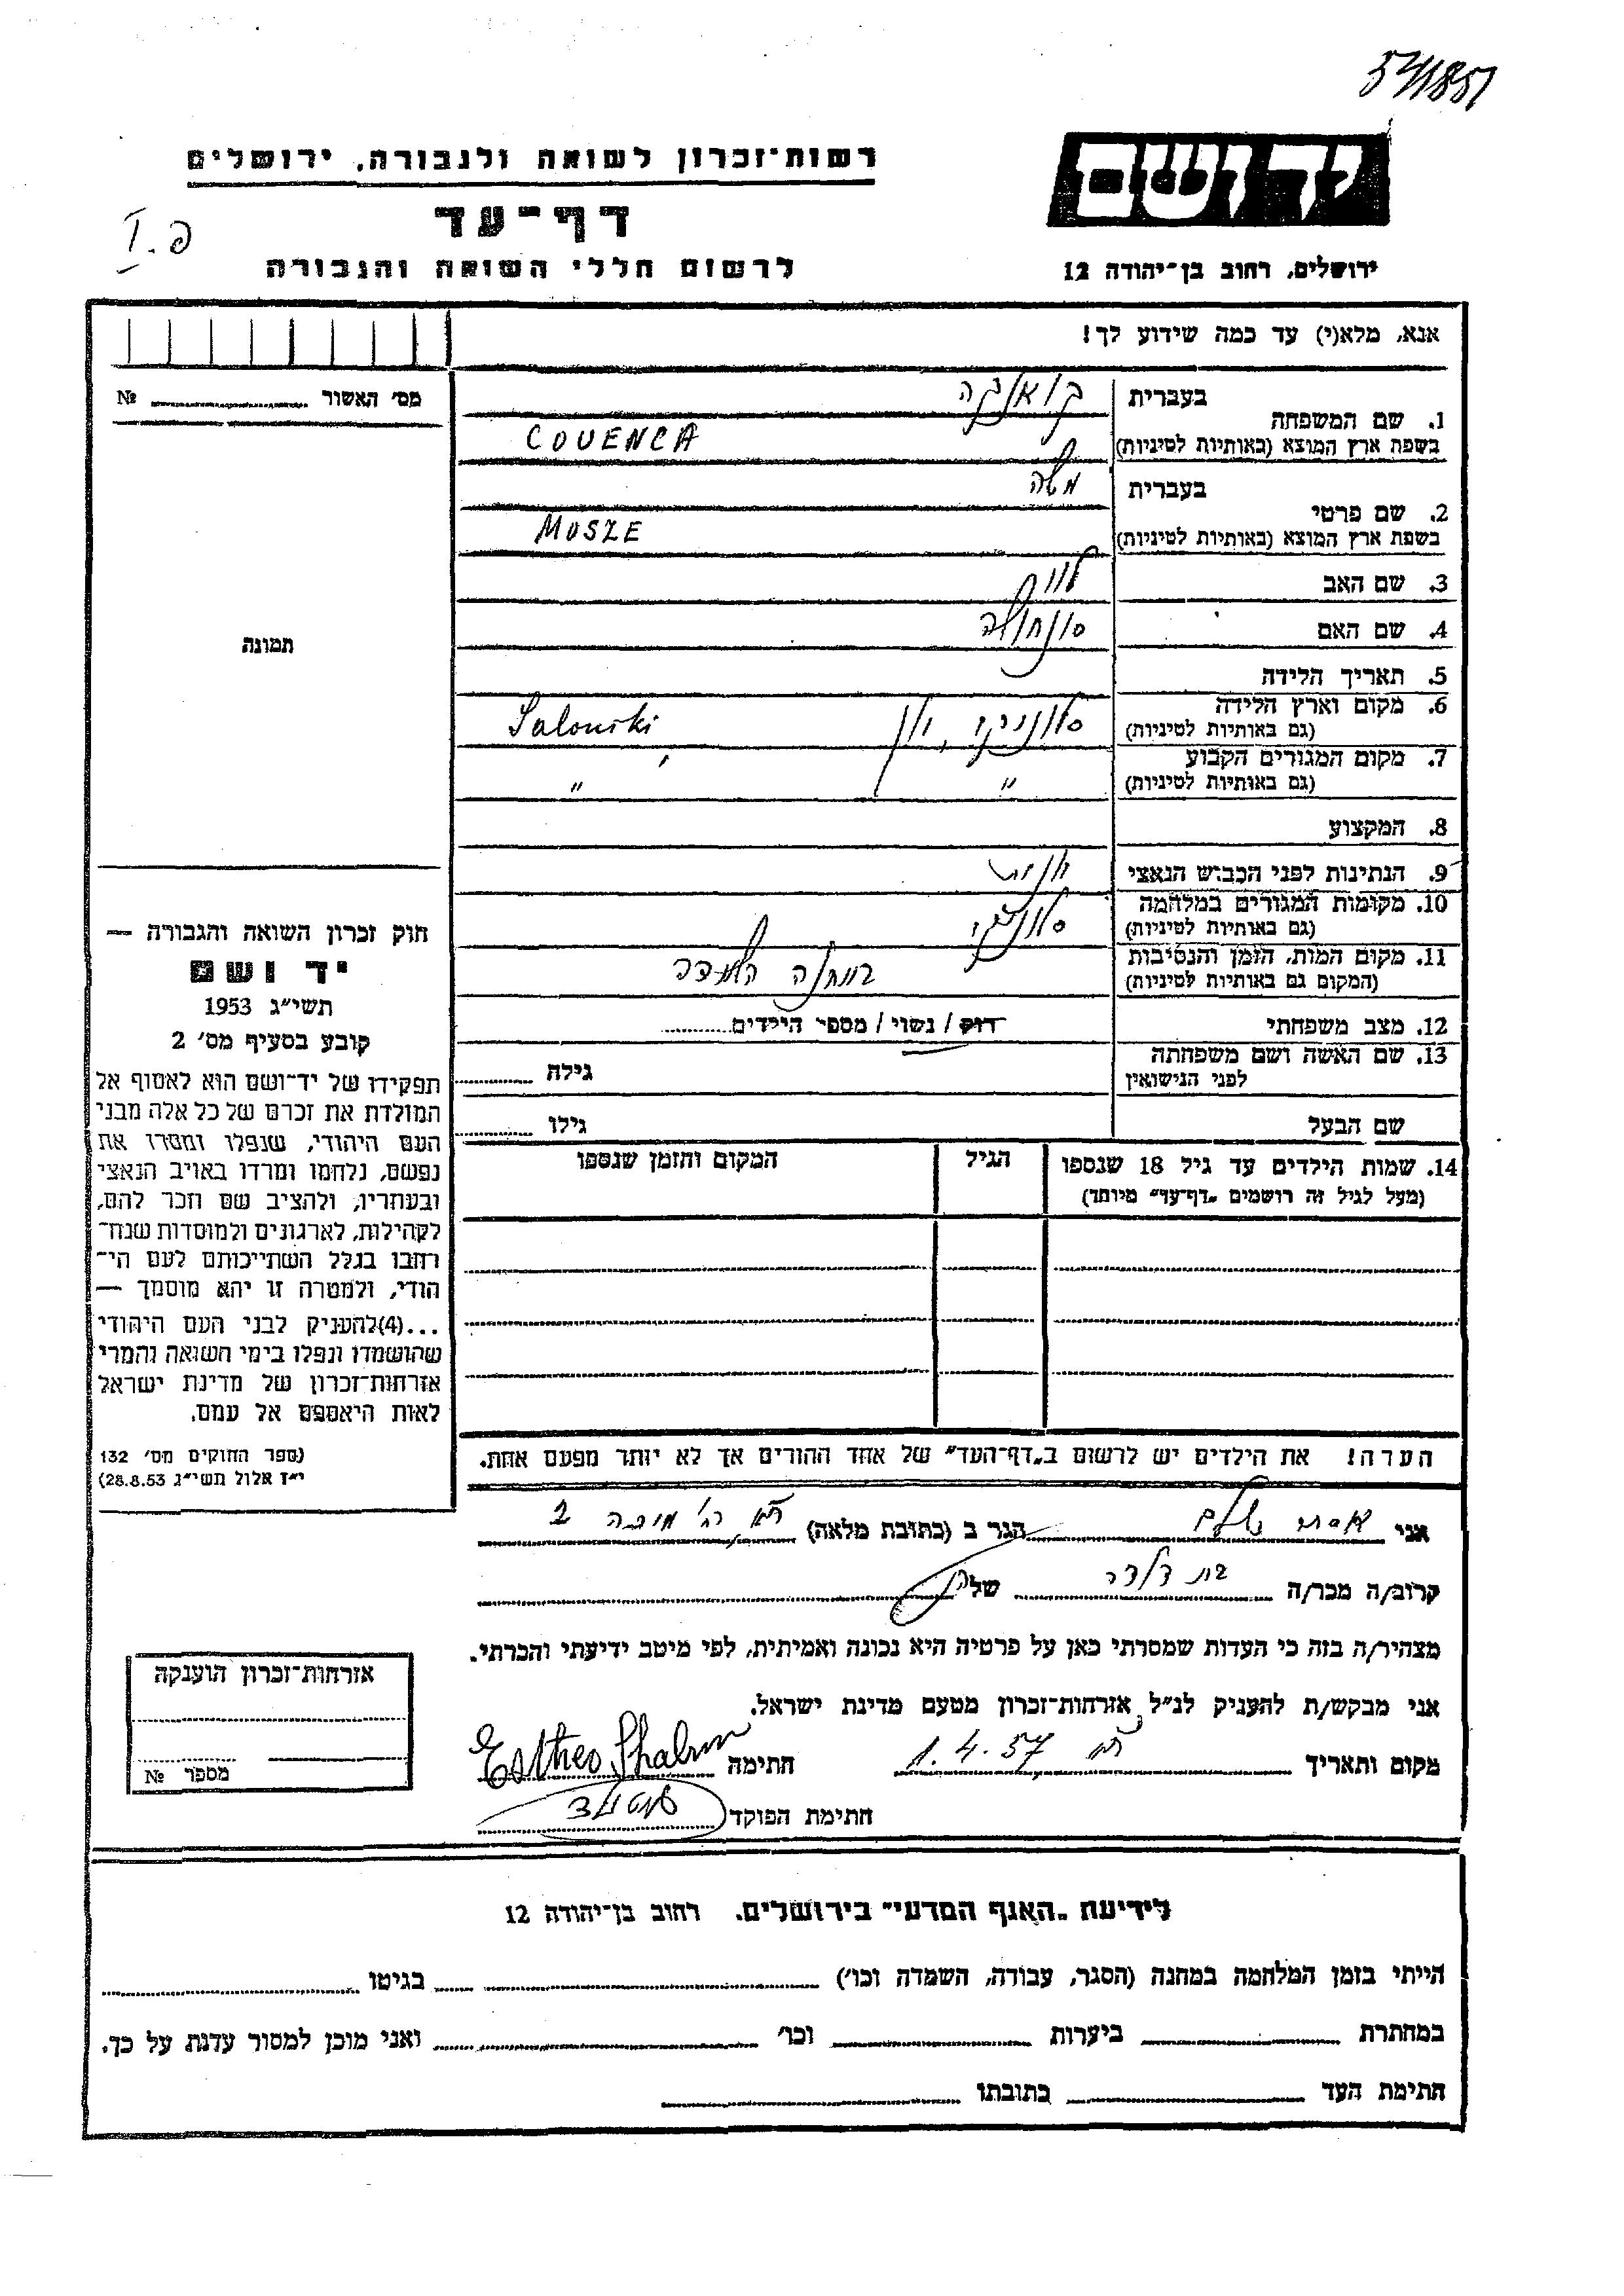 571851
רשות־זכרון לשואה ולגבורה, ירושלים
יד ושם
דף־עד
I.
לרשום חללי השואה והגבורה
ירושלים, רחוב בן־יהודה 12
אנא, מלא(י) עד כמה שידוע לך!
מס' האשור № 
1. שם המשפחה
בעברית
בשפת ארץ המוצא (באותיות לטיניות) COUENCA
2. שם פרטי
בעברית משה
בשפת ארץ המוצא (באותיות לטיניות) MOSZE
3. שם האב
4. שם האם
5. תאריך הלידה
6. מקום וארץ הלידה
(גם באותיות לטיניות) סלוניקי, יון Saloniki
7. מקום המגורים הקבוע
(גם באותיות לטיניות) " "
8. המקצוע
9. הנתינות לפני הכבוש הנאצי
10. מקומות המגורים במלחמה
(גם באותיות לטיניות) סלוניקי
11. מקום המות, הזמן והנסיבות
(המקום גם באותיות לטיניות) במחנה השמדה
12. מצב משפחתי רווק / נשוי / מספר הילדים
13. שם האשה ושם משפחתה
לפני הנישואין
גילה
שם הבעל
גילו
14. שמות הילדים עד גיל 18 שנספו
(מעל לגיל זה רושמים „דף־עד" מיוחד)
הגיל
המקום והזמן שנספו
הערה! את הילדים יש לרשום ב„דף־העד" של אחד ההורים אך לא יותר מפעם אחת.
תמונה
חוק זכרון השואה והגבורה —
יד ושם
תשי"ג 1953
קובע בסעיף מס' 2
תפקידו של יד־ושם הוא לאסוף אל
המולדת את זכרם של כל אלה מבני
העם היהודי, שנפלו ומסרו את
נפשם, נלחמו ומרדו באויב הנאצי
ובעוזריו, ולהציב שם וזכר להם,
לקהילות, לארגונים ולמוסדות שנח־
רחבו בגלל השתייכותם לעם הי־
הודי, ולמטרה זו יהא מוסמך —
...(4)להעניק לבני העם היהודי
שהושמדו ונפלו בימי השואה והמרי
אזרחות־זכרון של מדינת ישראל
לאות היאספם אל עמם.
(ספר החוקים מס' 132
י"ז אלול תשי"ג 28.8.53)
אני אסתר שלום הגר ב (כתובת מלאה)
קרוב/ה מכר/ה של
מצהיר/ה בזה כי העדות שמסרתי כאן על פרטיה היא נכונה ואמיתית, לפי מיטב ידיעתי והכרתי.
אני מבקש/ת להעניק לנ"ל אזרחות־זכרון מטעם מדינת ישראל.
מקום ותאריך 1.4.57 חתימה Esther Shalom
חתימת הפוקד
אזרחות־זכרון הוענקה
מספר №
לידיעת „האגף המדעי" בירושלים, רחוב בן־יהודה 12
הייתי בזמן המלחמה במחנה (הסגר, עבודה, השמדה וכו') בגיטו
במחתרת ביערות וכו' ואני מוכן למסור עדות על כך.
חתימת העד כתובתו